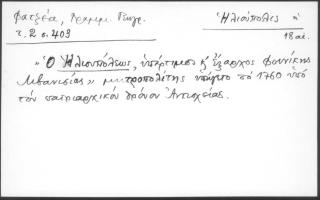 Φατζέα, Γραμμ. Γεωγρ.
τ. 2 σ. 403
Ἡλιούπολις ἡ
18 αἰ.
"Ὁ Ἡλιουπόλεως, ὑπέρτιμος & ἔξαρχος Φοινίκης
Λιβανισίας" μητροπολίτης ὑπήγετο τὸ 1760 ὑπὸ
τὸν πατριαρχικὸν θρόνον Ἀντιοχείας.